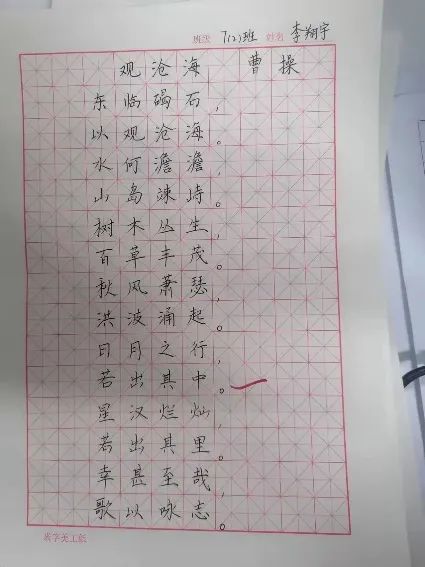 班次 7(2)班 姓名 李翔宇
观沧海 曹操
东临碣石，
以观沧海。
水何澹澹，
山岛竦峙。
树木丛生，
百草丰茂。
秋风萧瑟，
洪波涌起。
日月之行，
若出其中。
星汉烂灿，
若出其里。
幸甚至哉，
歌以咏志。